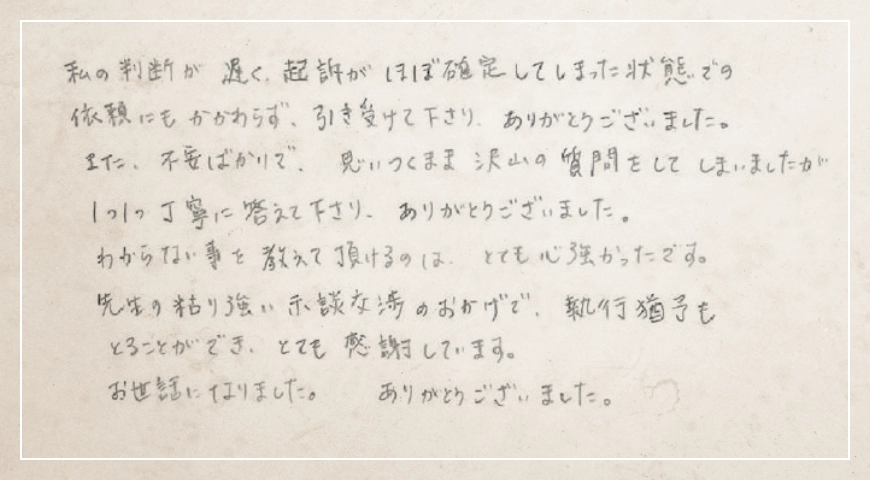 私の判断が遅く、起訴がほぼ確定してしまった状態での
依頼にもかかわらず、引き受けて下さり、ありがとうございました。
また、不安ばかりで、思いつくまま沢山の質問をしてしまいましたが
1つ1つ丁寧に答えて下さり、ありがとうございました。
わからない事を教えて頂けるのは、とても心強かったです。
先生の粘り強い示談交渉のおかげで、執行猶予も
とることができ、とても感謝しています。
お世話になりました。 ありがとうございました。